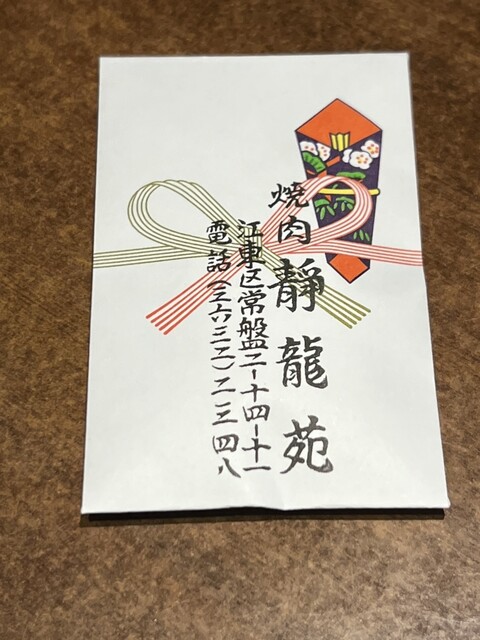 焼肉靜龍苑
江東区常盤二-十四-十一
電話(三六三二)二三四八